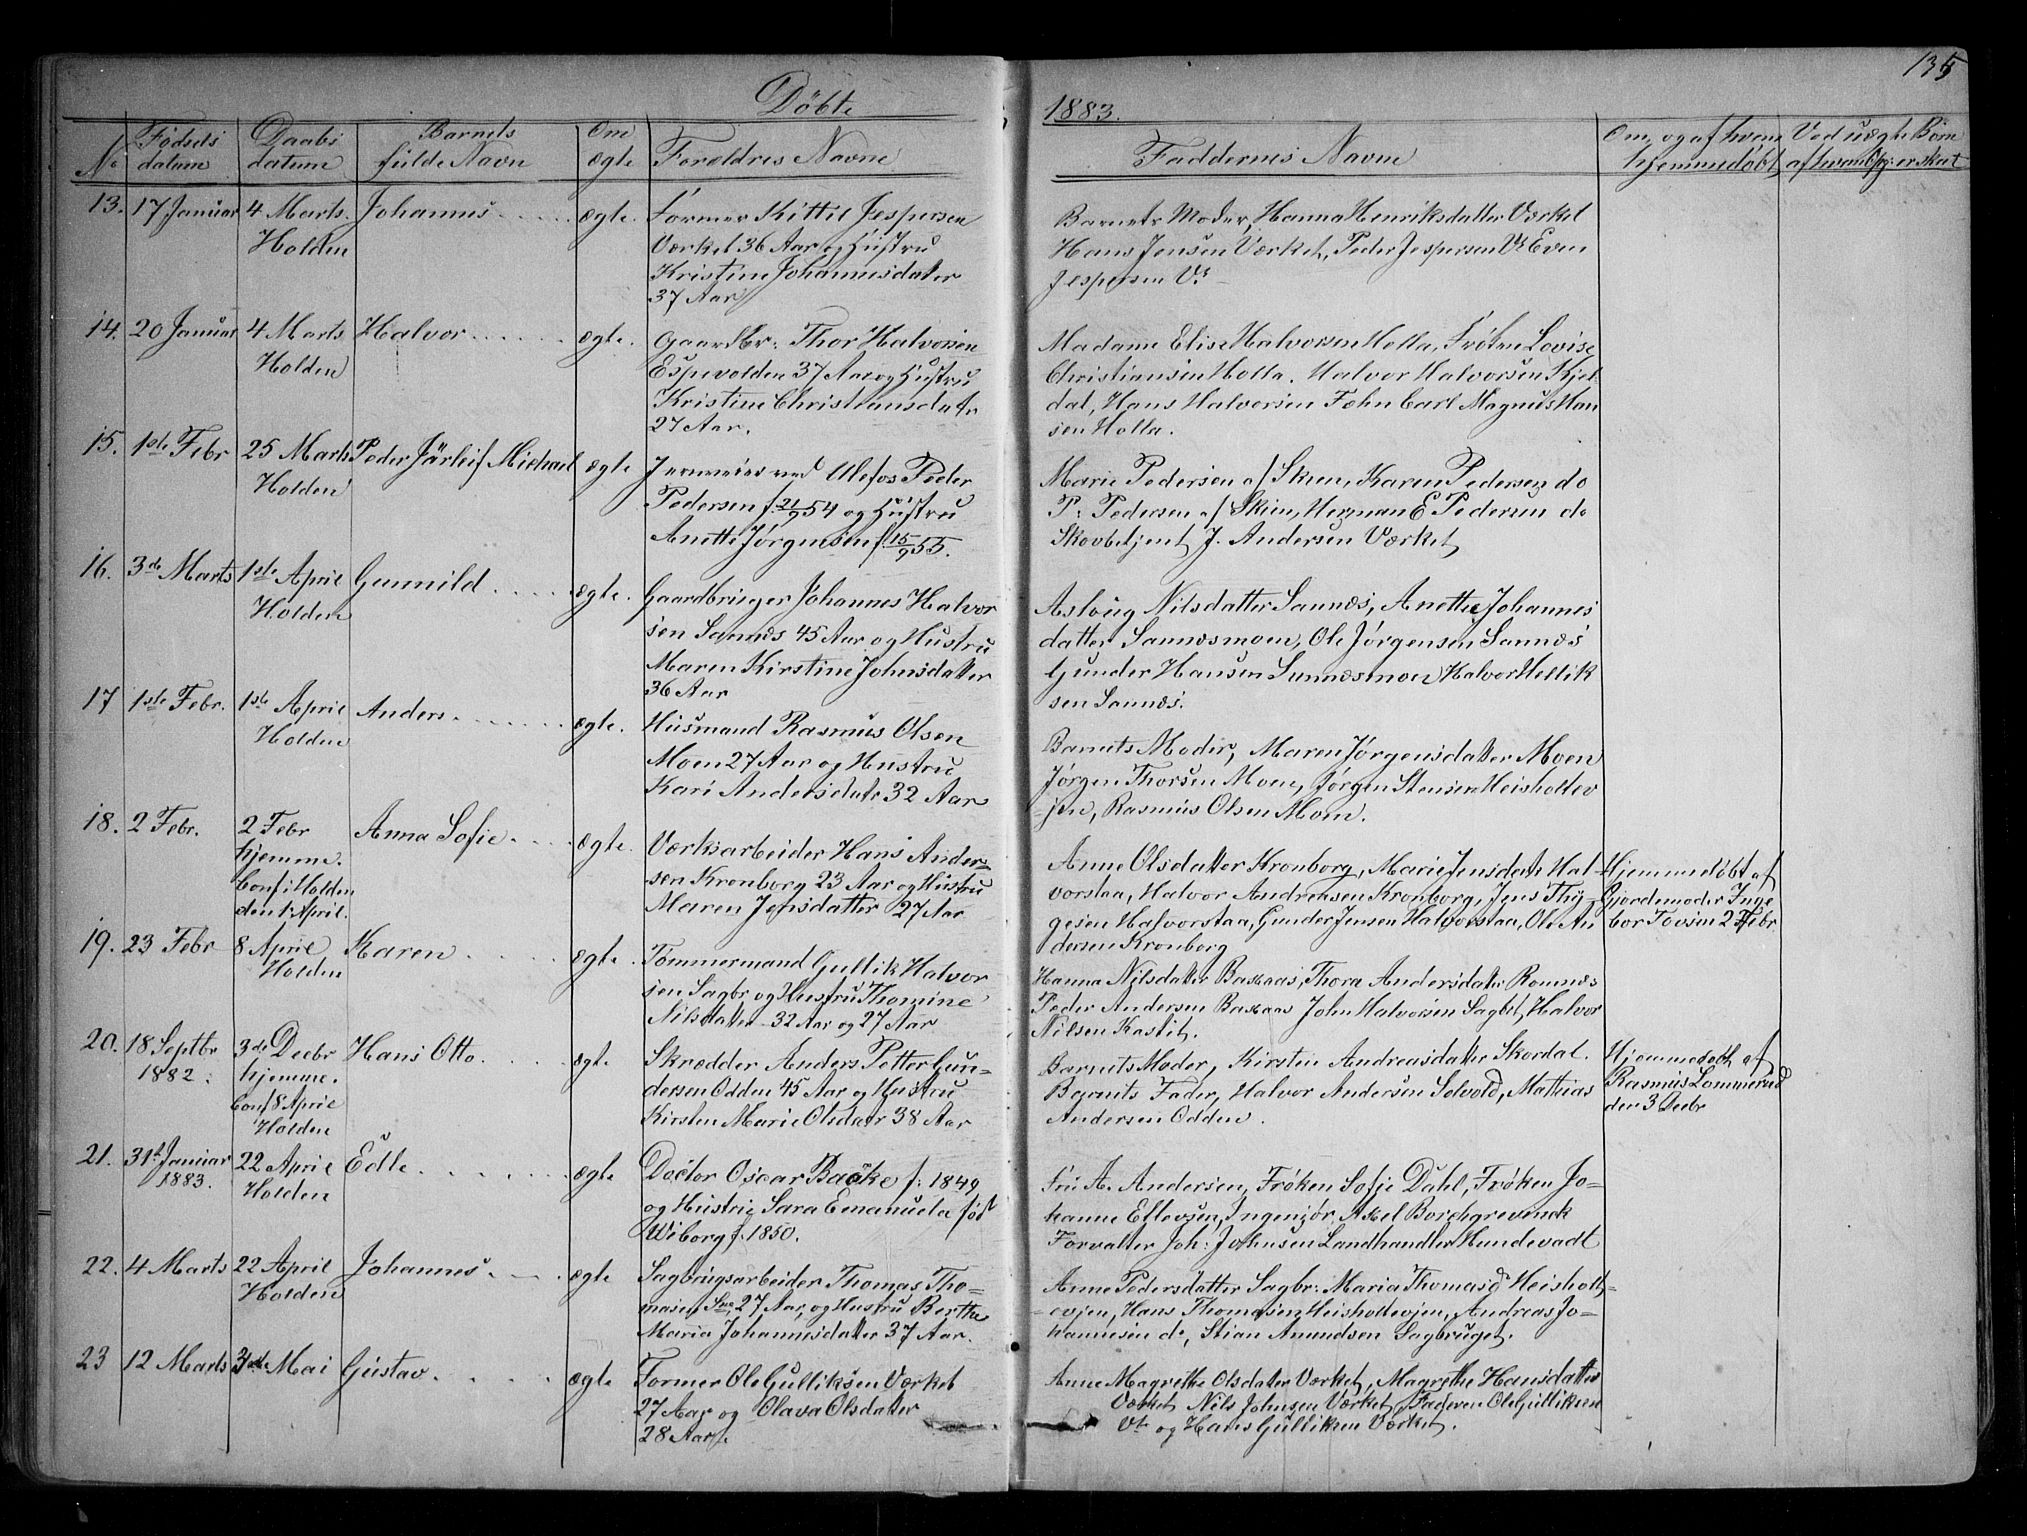 135
Döbte
1883.
No
Fødsels datum
Daabs datum
Barnets fulde Navn
Om ægte
Forældres Navne
Faddernes Navne
Om, og af hvem hjemmedøbt,
Ved uægte Børn af hvem Opg: er skeet
13. 17 Januar 4 Marts. Johannes ægte. Former Kittil Jespersen
Holden Værket 36 Aar og Hustru
Kristine Johannesdatter
37 Aar
Barnets Moder, Hanna Henriksdatter Værket
Hans Jensen Værket, Peder Jespersen Vt Even
Jespersen Vt
14. 20 Januar 4 Marts Halvor ægte. Gaardbr: Thor Halvorsen
Holden Espevolden 37 Aar og Hustru
Kristine Christiansdatr
27 Aar.
Madame Elise Halvorsen Holla, Frøken Lovise
Christiansen Holla. Halvor Halvorsen Kjel-
dal, Hans Halvorsen Fehn Carl Magnus Han
sen Holla.
15. 1ste Febr 25 Marts Peder Järleif Michael ægte Jernværk ved Ulefos Peder
Holden Pedersen f. 21/9 54 og Hustru
Anette Jørgensen f. 15/9 55.
Marie Pedersen af Skien, Karen Pedersen do
P: Pedersen af Skien, Herman E Pedersen do
Skovbetjent J. Andersen Værket
16. 3de Marts 1ste April Gunnild ægte. Gaardbruger Johannes Halvor
Holden sen Sannæs 45 Aar og Hustru
Maren Kirstine Johnsdatter
36 Aar
Asloug Nilsdatter Sannæs, Anette Johannes
datter Sannæsmoen, Ole Jørgensen Sannæs
Gunder Hansen Sannæsmoen Halvor Hellik
sen Sannæs.
17 1ste Febr. 1ste April Anders ægte. Husmand Rasmus Olsen
Holden Moen 27 Aar og Hustru
Kari Andersdatr 32 Aar
Barnets Moder, Maren Jørgensdatter Moen
Jørgen Thorsen Moen, Jørgen Stensen Heisholtev
jen, Rasmus Olsen Moen.
18. 2 Febr. 2 Febr Anna Sofie ægte. Værksarbeider Hans Ander-
hjemme. sen Kronborg 23 Aar og Hustru
Conf: Holden Maren Jensdatter 27 Aar
den 1 April.
Anne Olsdatter Kronborg, Marie Jensdatr Hal-
vorstaa, Halvor Andreasen Kronborg, Jens Thy-
gesen Halvorstaa, Gunder Jensen Halvorstaa, Ole An
dersen Kronborg
Hjemmedøbt af
Gjordemoder Inge
bor Tovsen 2 Febr
19. 23 Febr 8 April Karen ægte. Tømmermand Gullik Halvor
Holden sen Sagbr og Hustru Thomine
Nilsdatter 32 Aar og 27 Aar
Hanna Nilsdatter Baskaas, Thora Andersdatter Romnæs
Peder Andersen Baskaas John Halvorsen Sagbr, Halvor
Nilsen Kastet.
20. 18 Septbr 3de Decbr Hans Otto ægte Skrædder Anders Petter Gun-
1882. hjemme. dersen Odden 45 Aar og Hustru
Conf 8 April Kirsten Marie Olsdatr 38 Aar
Holden
Barnets Moder, Kirsten Andreasdatter Skordal.
Barnets Fader, Halvor Andersen Solvold, Mathias
Andersen Odden.
Hjemmedøbt af
Rasmus Lommerud
der 3 Decbr
21. 31te Januar 22 April Edle ægte Doctor Oscar Backe f: 1849
1883. Holden og Hustru Sara Emanuela født
Wiborg f. 1850.
Fru A. Andersen, Frøken Sofie Dahl, Frøken Jo-
hanne Ellevsen, Ingeniør Axel Borchgrevinck
Forvalter Joh: Johnsen Landhandler Hundevadt
22. 4 Marts 22 April Johannes ægte Sagbrugsarbeider Thomas Tho-
Holden masen 27 Aar, og Hustru Berthe
Maria Johannesdatter 37 Aar.
Anne Pedersdatter Sagbr: Maria Thomasd Heisholt-
evjen, Hans Thomasen Heisholtevjen, Andreas Jo-
hannesen do, Stian Amundsen Sagbruget.
23 12 Marts 3die Mai Gustav ægte Former Ole Gulliksen Værket
27 Aar og Olava Olsdatter
28 Aar.
Anne Magrethe Olsdatter Værket, Magrethe Hansdatter
Værket Nils Johnsen Værket, Faderen Ole Gulliksen
Vt og Hans Gulliksen Værket.